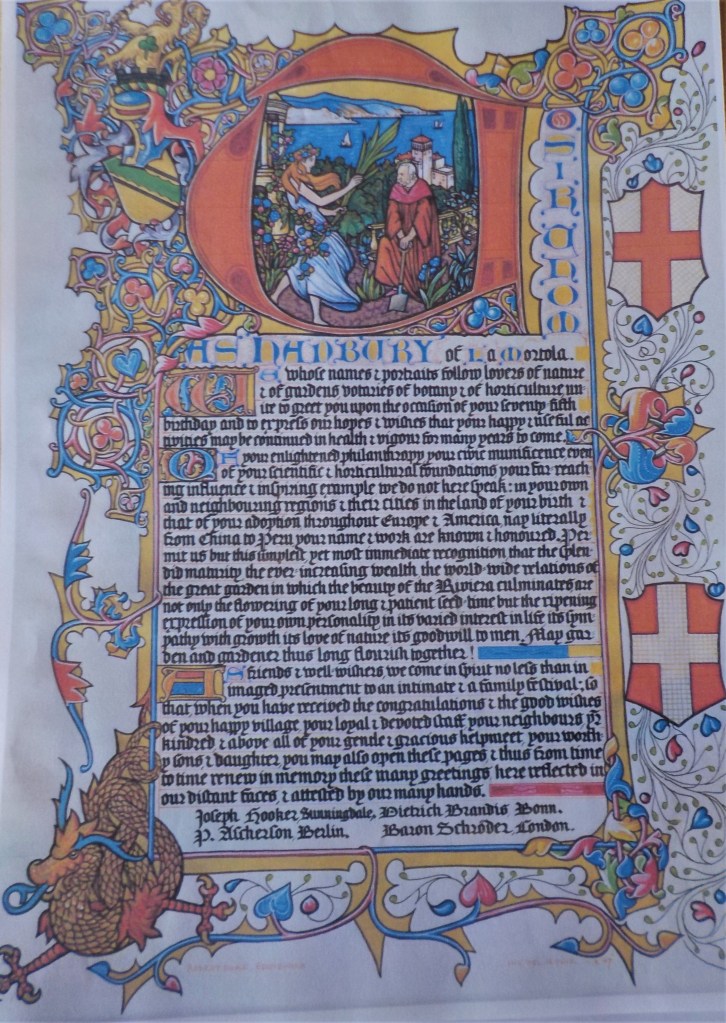 TO SIR THOM
AS HANBURY of La Mortola.
WE whose names & portraits follow lovers of nature
& of gardens votaries of botany & of horticulture un
ite to greet you upon the occasion of your seventy fifth
birthday and to express our hopes & wishes that your happy & useful ac
tivities may be continued in health & vigour for many years to come.
OF your enlightened philanthropy your civic munificence even
of your scientific & horticultural foundations your far reach
ing influence & inspiring example we do not here speak: in your own
and neighbouring regions & their cities in the land of your birth &
that of your adoption throughout Europe & America, nay literally
from China to Peru your name & work are known & honoured. Per
mit us but this simplest yet most immediate recognition that the splen
did maturity the ever increasing wealth the world-wide relations of
the great garden in which the beauty of the Riviera culminates are
not only the flowering of your long & patient seed-time but the ripening
expression of your own personality in its varied interest in life its sym
pathy with growth its love of nature its goodwill to men. May gar
den and gardener thus long flourish together!
AS friends & well wishers, we come in spirit no less than in
imaged presentment to an intimate & a family festival; so
that when you have received the congratulations & the good wishes
of your happy village, your loyal & devoted staff, your neighbours yr
kindred & above all of your gentle & gracious helpmeet, your worth
y sons & daughter, you may also open these pages, & thus from time
to time renew in memory these many greetings, here reflected in
our distant faces, & attested by our many hands.
Joseph Hooker Sunningdale, Dietrich Brandis Bonn.
P. Ascherson Berlin. Baron Schröder London.